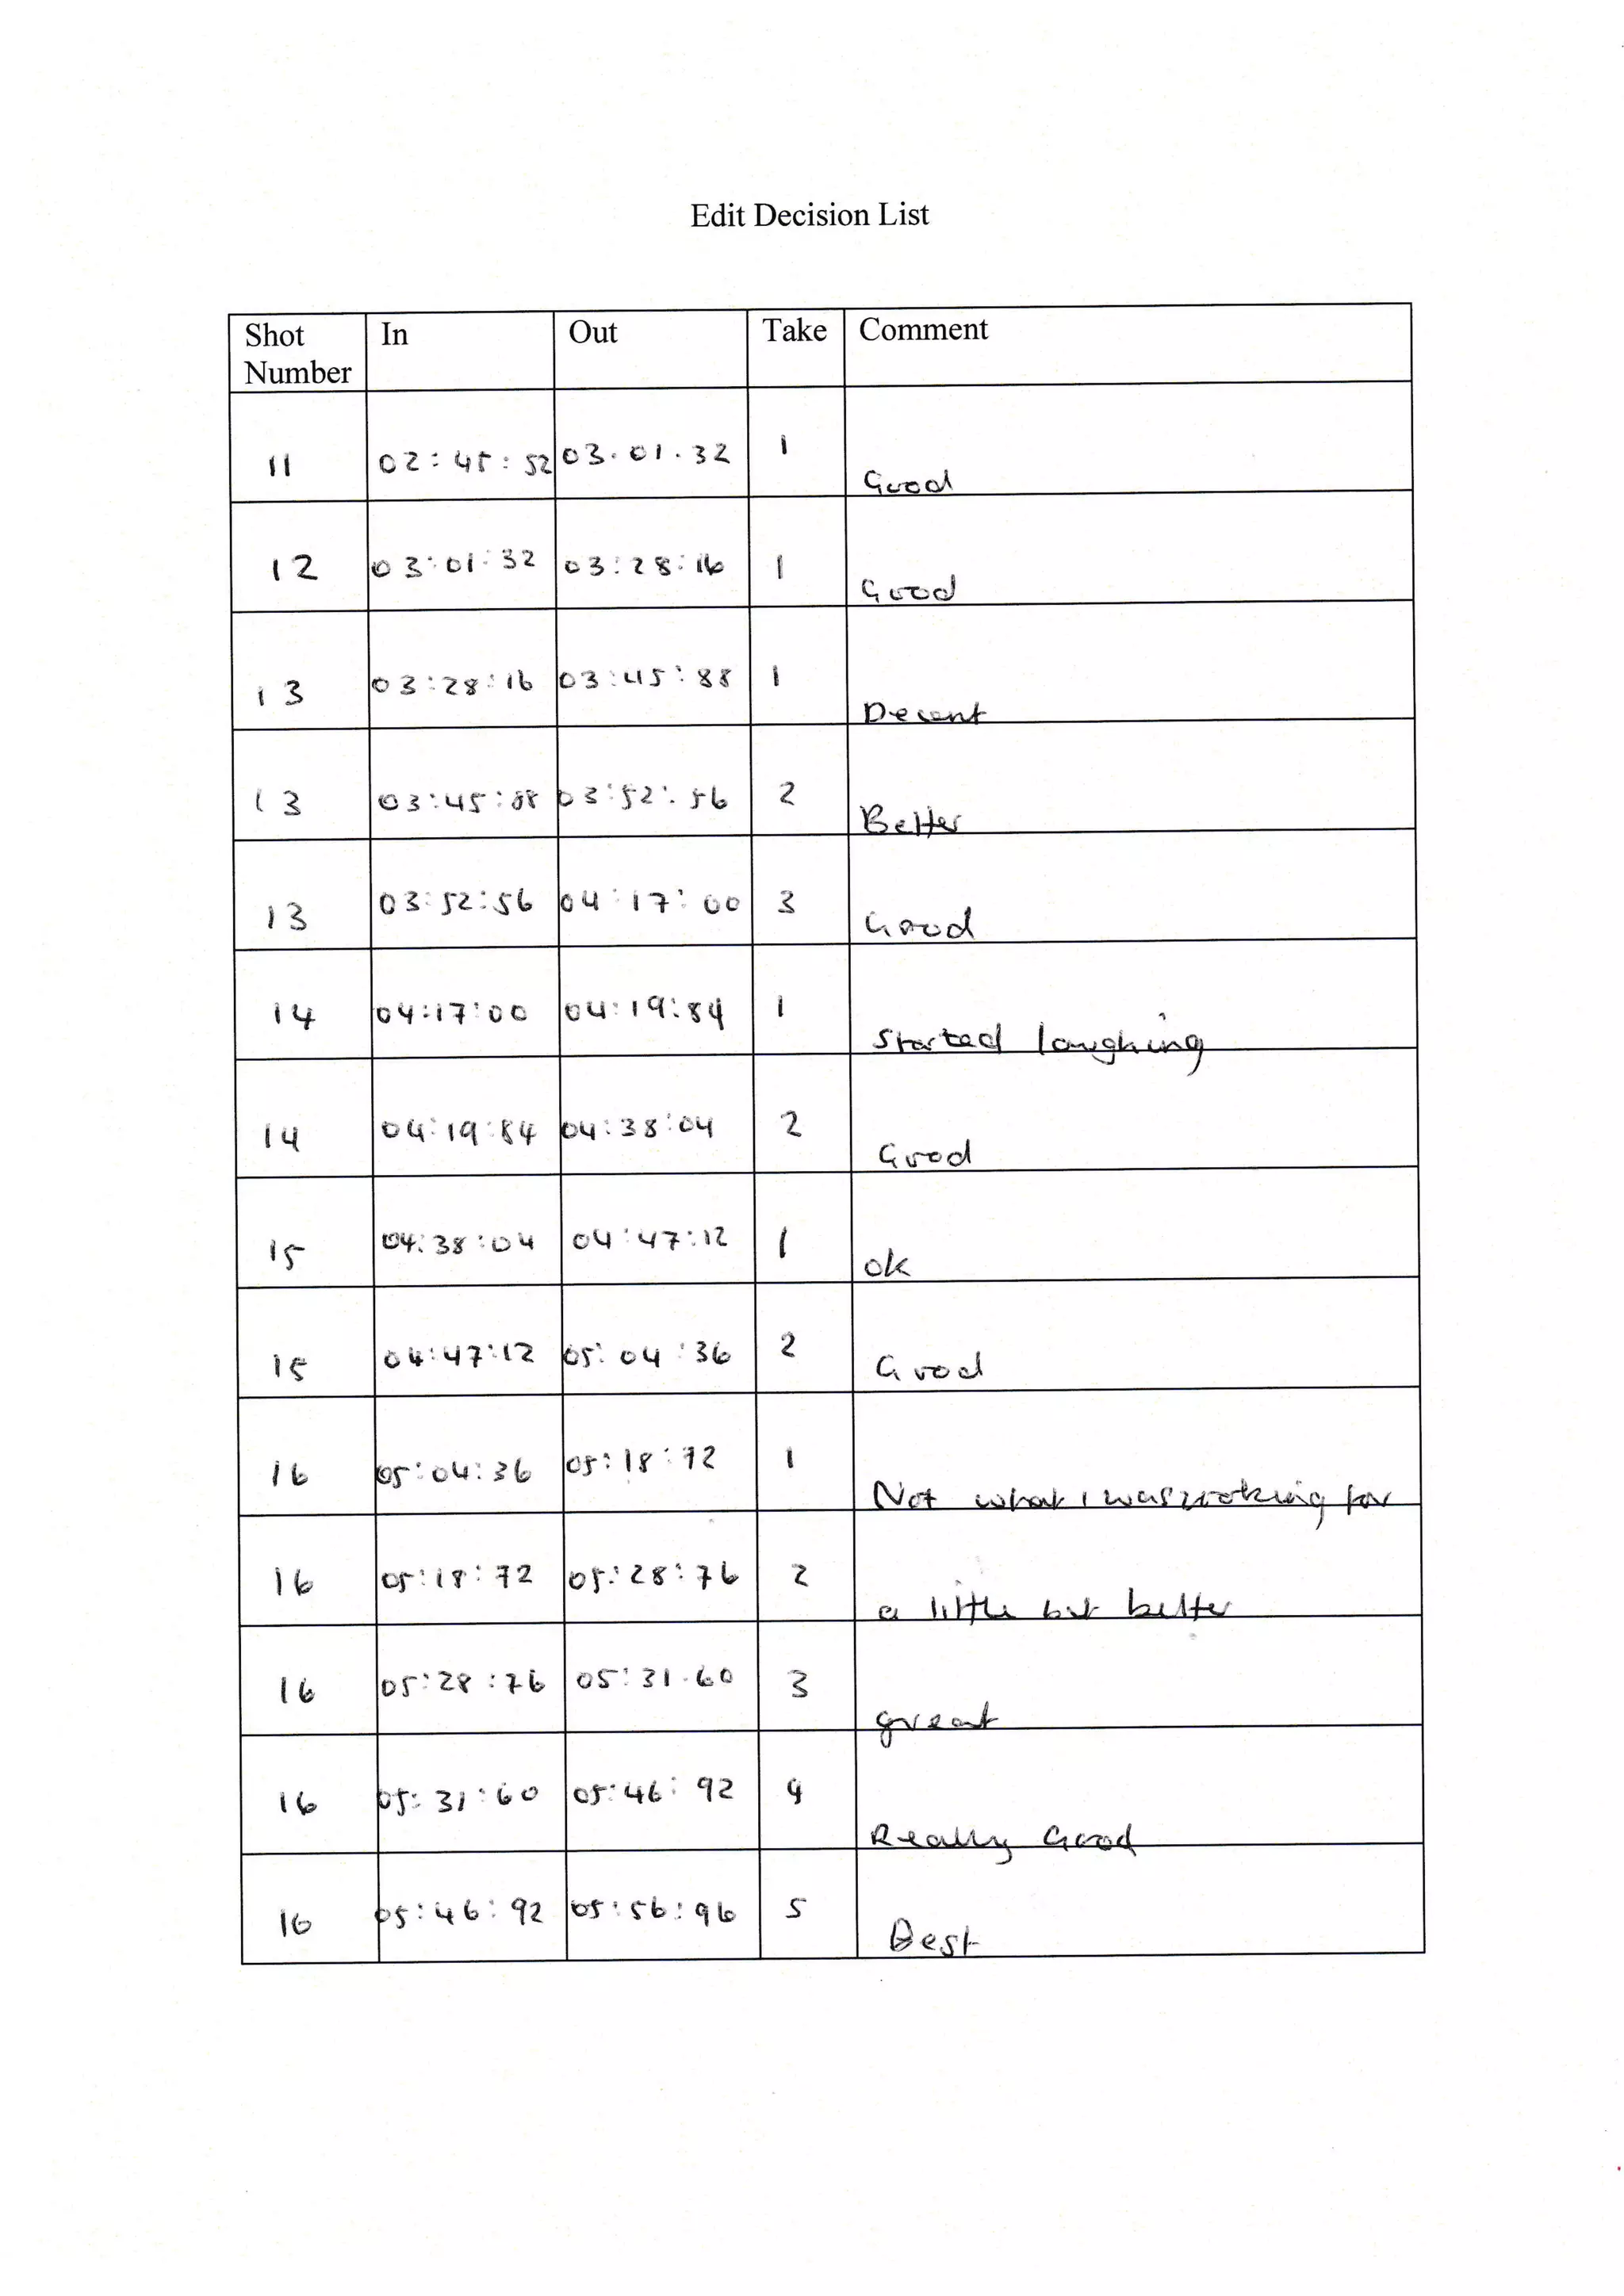 Edit Decision List
Shot Number In Out Take Comment
11 02:45:52 03.01.32 1 Good
12 03:01:32 03:28:16 1 Good
13 03:28:16 03:45:88 1 Decent
13 03:45:88 03:52:56 2 Better
13 03:52:56 04:17:00 3 Good
14 04:17:00 04:19:84 1 Started laughing
14 04:19:84 04:38:04 2 Good
15 04:38:04 04:47:12 1 ok
15 04:47:12 05:04:36 2 Good
16 05:04:36 05:18:72 1 Not what i was looking for
16 05:18:72 05:28:76 2 a little bit better
16 05:28:76 05:31.60 3 great
16 05:31:60 05:46:92 4 Really Good
16 05:46:92 05:56:96 5 Best